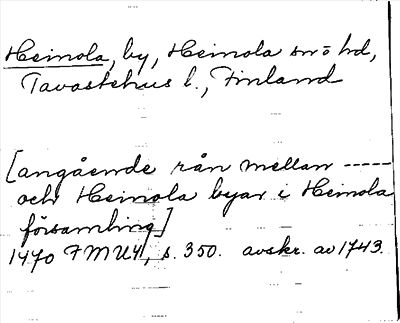 Heinola, by, Heinola snö hd,
Tavastehus l., Finland
[angående rån mellan -----
och Heinola byar i Heinola
församling]
1470 FMU4, s. 350. avskr. av 1743.